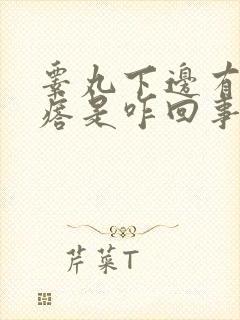 睾丸下邊有
痞是咋回事
芹菜T